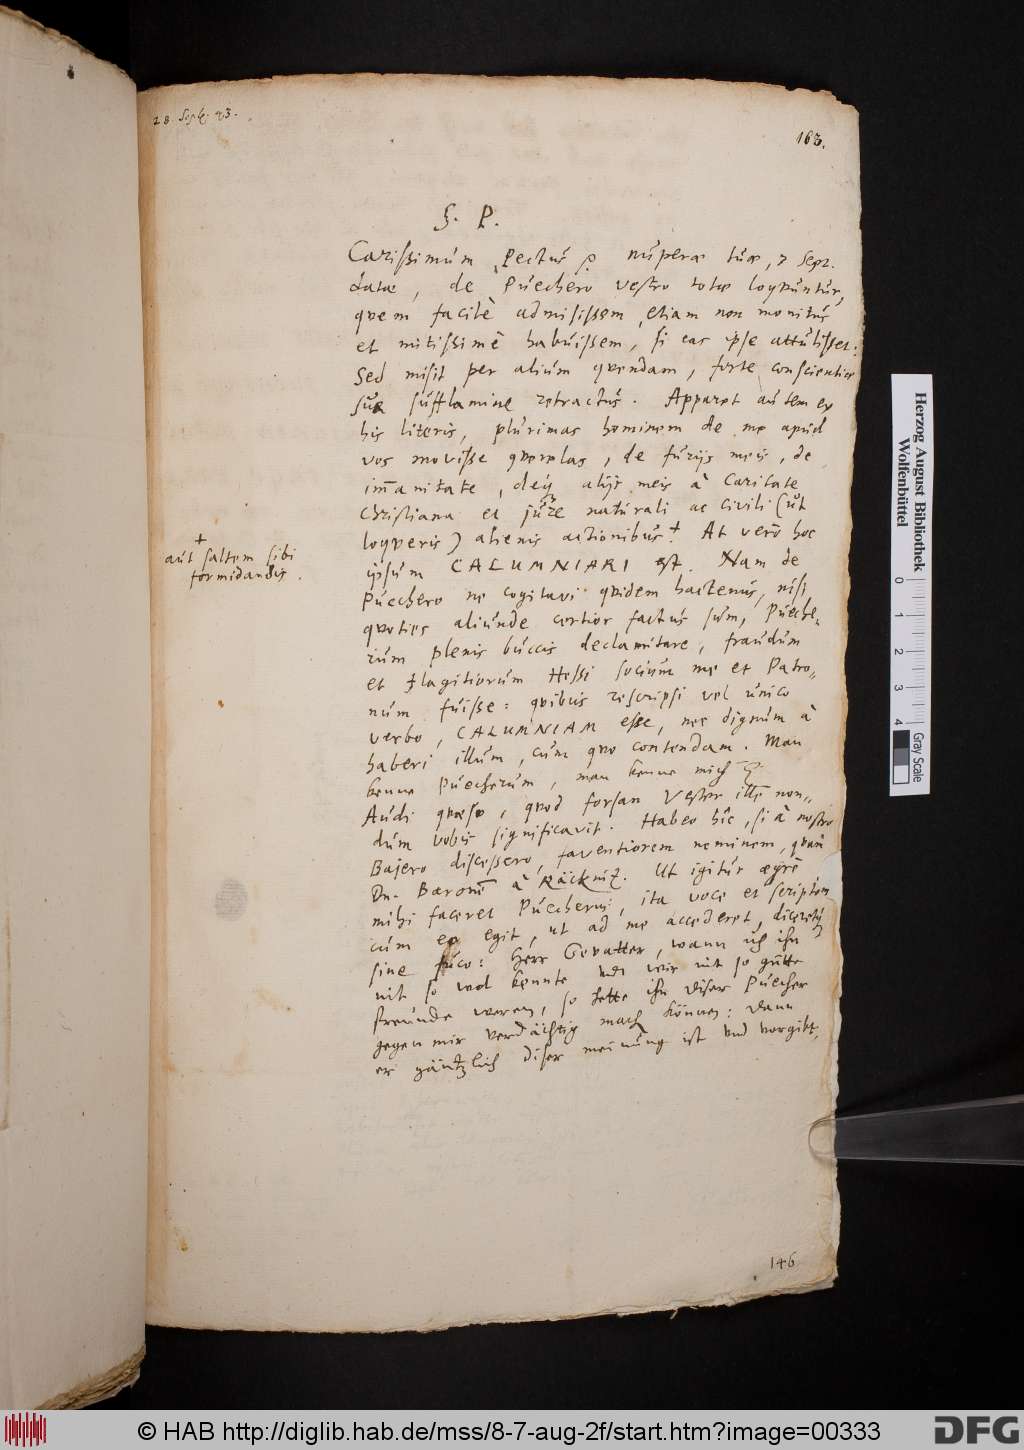 28 Sept. 43.
163.
S. P.
Carissimum Pectus, nuperæ tuæ, 7 Sept.
datæ, de Püechero vestro totæ loqvuntur,
qvem facilè admisissem, etiam non monitus
et mitissimè habuissem, si eas ipse attulisset:
Sed misit per alium qvendam, forte conscientiæ
suæ sufflamine retractus. Apparet autem ex
his literis, plurimas hominem de me apud
vos movisse qverelas, de furijs meis, de
im̄anitate, deq́ȝ alijs meis à Caritate
Christiana et jure naturali ac civili (ut
loqveris) alienis actionibus + At verò hoc
+
aut saltem sibi
formidandis.
ipsum CALUMNIARI est. Nam de
Püechero ne cogitavi qvidem hactenus, nisi
qvoties aliunde certior factus sum, Püeche-
rum plenis buccis declamitare, fraudum
et flagitiorum Hessi socium me et Patro-
num fuisse: qvibus rescripsi vel unico
verbo, CALUMNIAM esse, nec dignum à
haberi illum, cum qvo contendam. Man
kenne Püecherum, man kenne mich
Audi qvæso, qvod forsan Vester ille non-
dum vobis significavit. Habeo hîc, si à nostro
Bajero discessero, faventiorem neminem, qvàm
Dn. Baronē à Räckniz. Ut igitur ægrè
mihi faceret Püecherus, ita voce et scriptom
cum eo egit, ut ad me accederet, diceretq́ȝ
sine fuco: Herr Gevatter, wann ich ihn
nit so wol kennte und wir nit so gutte
freunde weren, so hette ihn diser Püecher
gegen mir verdächtig mach können: dann
er gäntzlich diser meinung ist und vorgibt,
146
Herzog August Bibliothek
Wolfenbüttel
0 1 2 3 4
Gray Scale
© HAB http://diglib.hab.de/mss/8-7-aug-2f/start.htm?image=00333
DFG